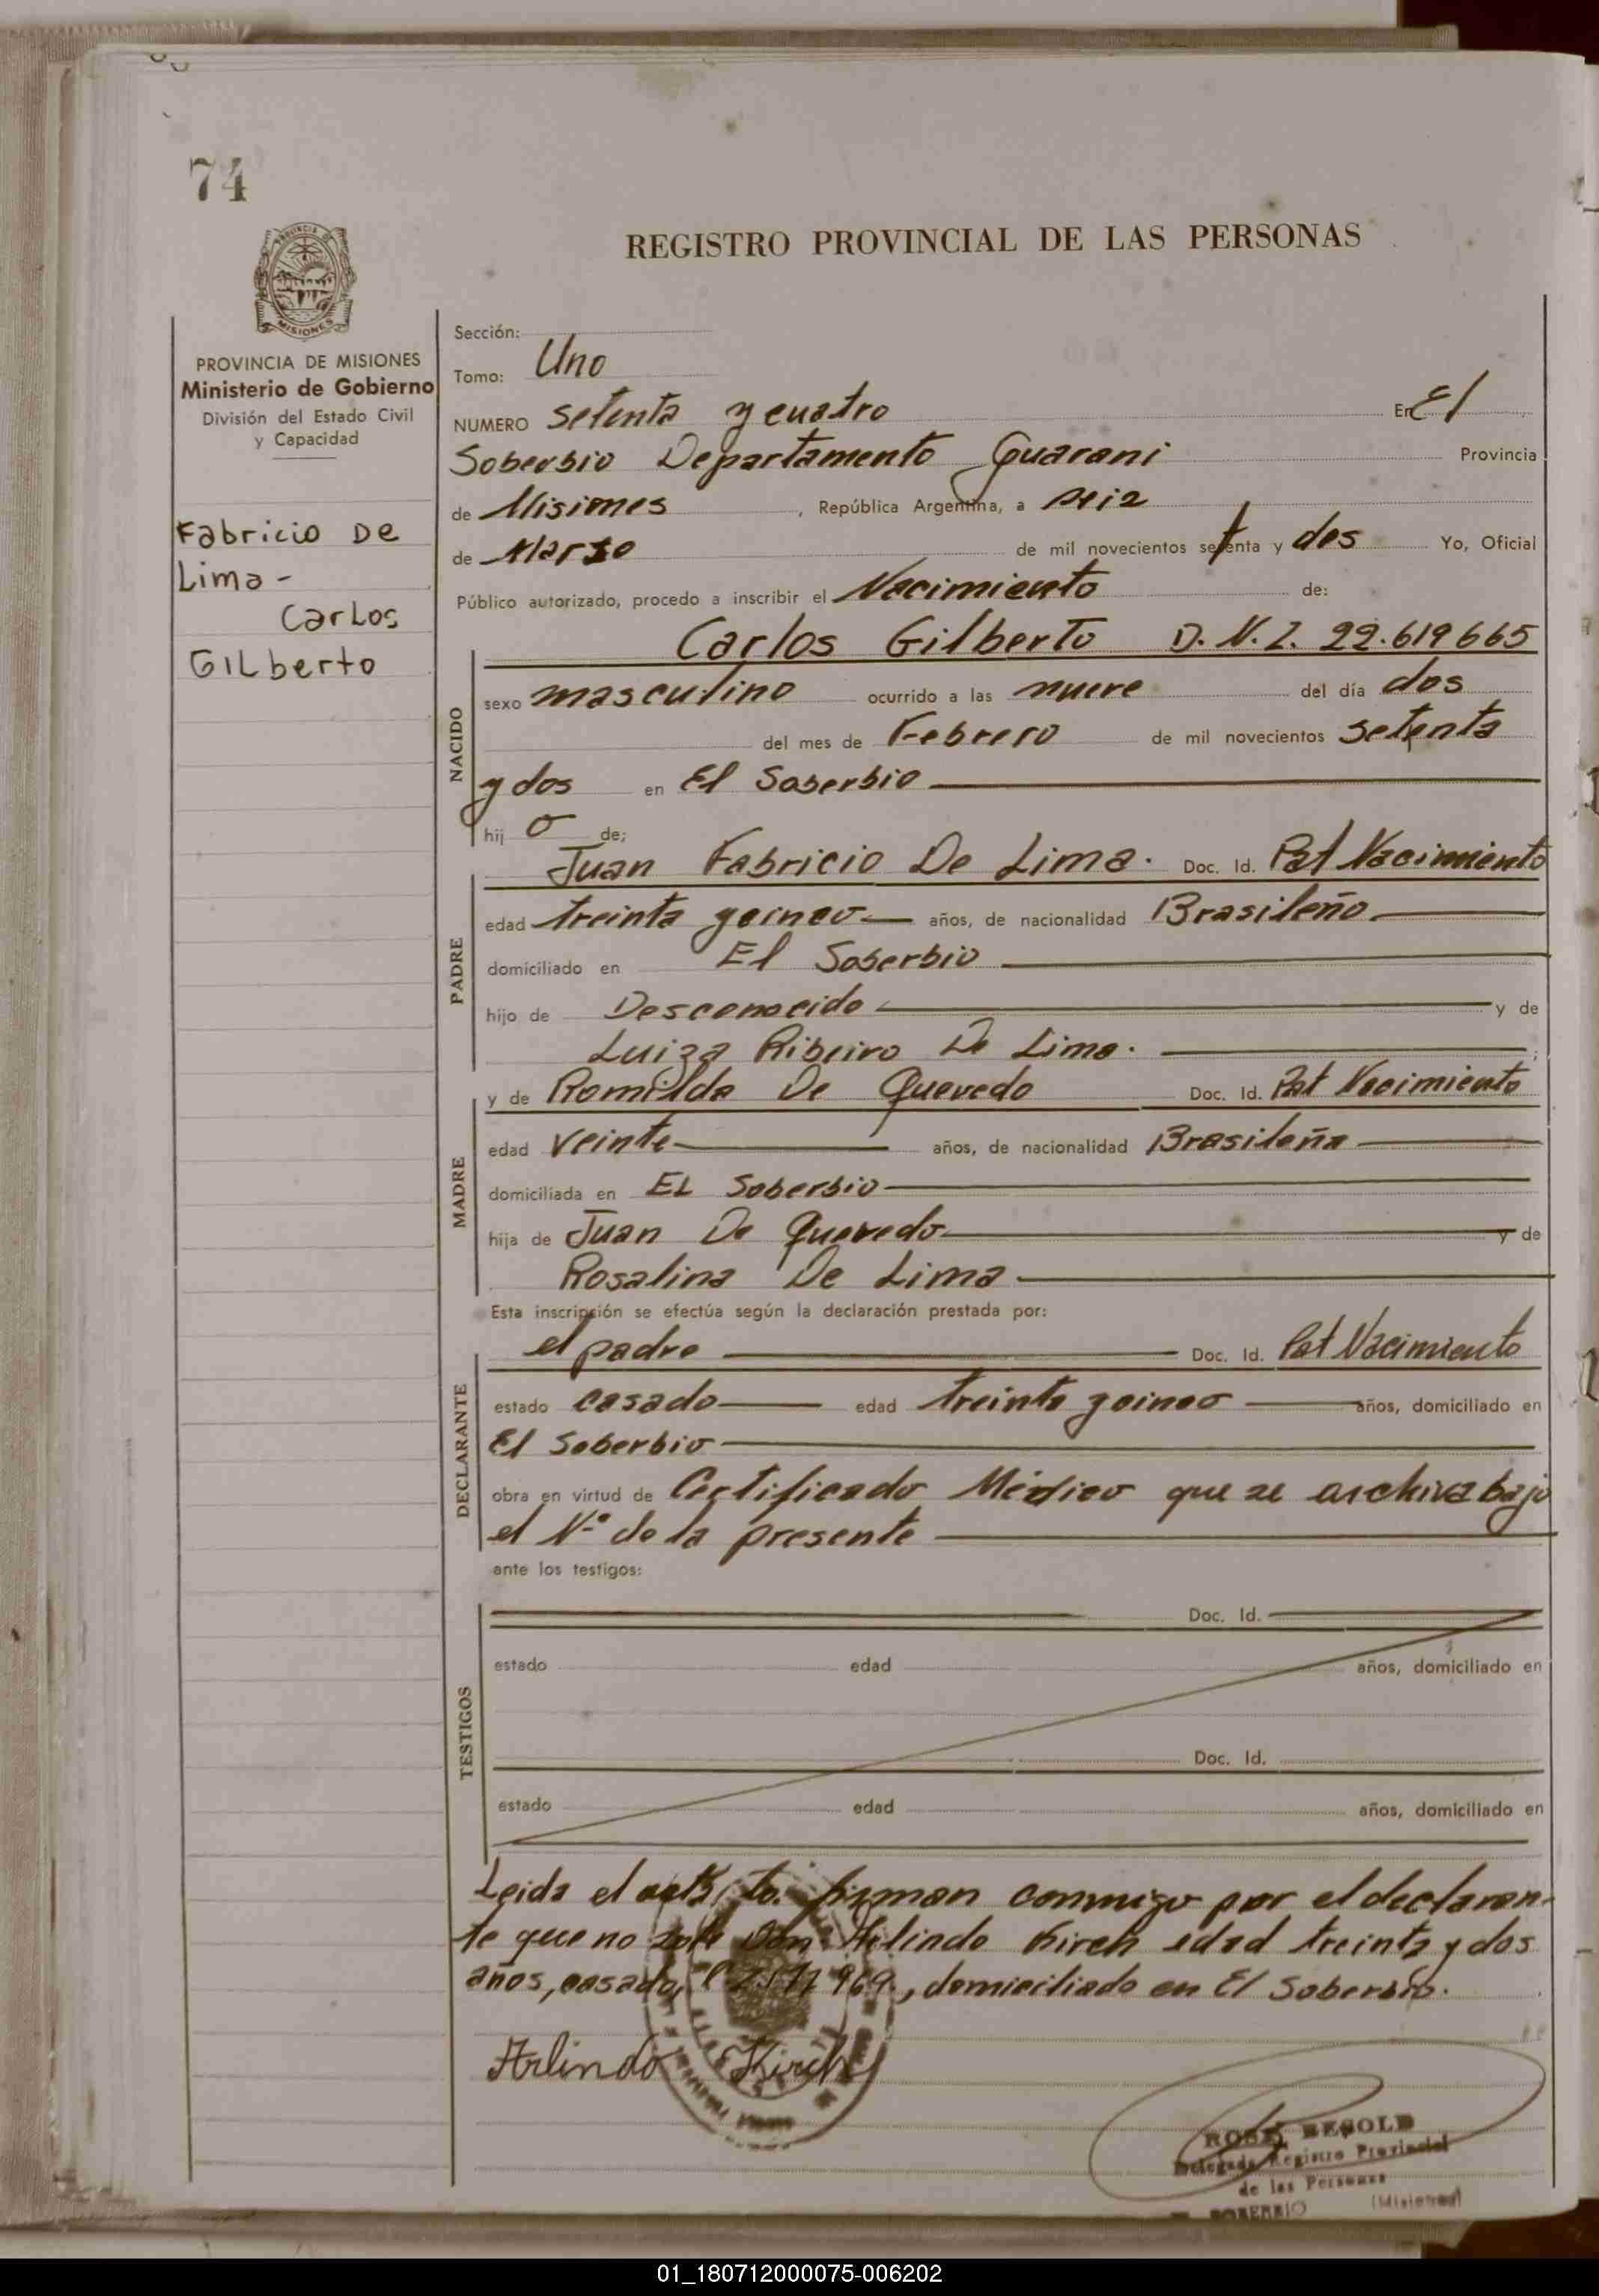 74
REGISTRO PROVINCIAL DE LAS PERSONAS
PROVINCIA DE MISIONES
MISIONES
PROVINCIA DE MISIONES
Ministerio de Gobierno
División del Estado Civil
y Capacidad
Fabricio De
Lima-
Carlos
Gilberto
Sección:
Tomo: Uno
NUMERO setenta y cuatro En El
Soberbio Departamento Guarani Provincia
de Misiones, República Argentina, a seis
de Marzo de mil novecientos setenta y dos Yo, Oficial
Público autorizado, procedo a inscribir el Nacimiento de:
NACIDO
Carlos Gilberto D.N.I. 22.619665
sexo masculino ocurrido a las nueve del día dos
del mes de Febrero de mil novecientos setenta
y dos en El Soberbio
hij o de;
PADRE
Juan Fabricio De Lima. Doc. Id. Pat Nacimiento
edad treinta y cinco años, de nacionalidad Brasileño
domiciliado en El Soberbio
hijo de Desconocido y de
Luiza Ribeiro De Lima. ;
MADRE
y de Romilda De Quevedo Doc. Id. Pat Nacimiento
edad veinte años, de nacionalidad Brasileña
domiciliada en El Soberbio
hija de Juan De Quevedo y de
Rosalina De Lima
Esta inscripción se efectúa según la declaración prestada por:
DECLARANTE
el padre Doc. Id. Pat Nacimiento
estado casado edad treinta y cinco años, domiciliado en
El Soberbio
obra en virtud de Certificado Médico que se archiva bajo
el Nº de la presente
ante los testigos:
TESTIGOS
Doc. Id.
estado edad años, domiciliado en
Doc. Id.
estado edad años, domiciliado en
Leida el acta, firman conmigo por el declaran-
te que no Don Arlindo Kirch edad treinta y dos
años, casado, domiciliado en El Soberbio.
Arlindo Kirch
BESOLD
Delegado Registro Provincial
de las Personas
SOBERBIO (Misiones)
01_180712000075-006202